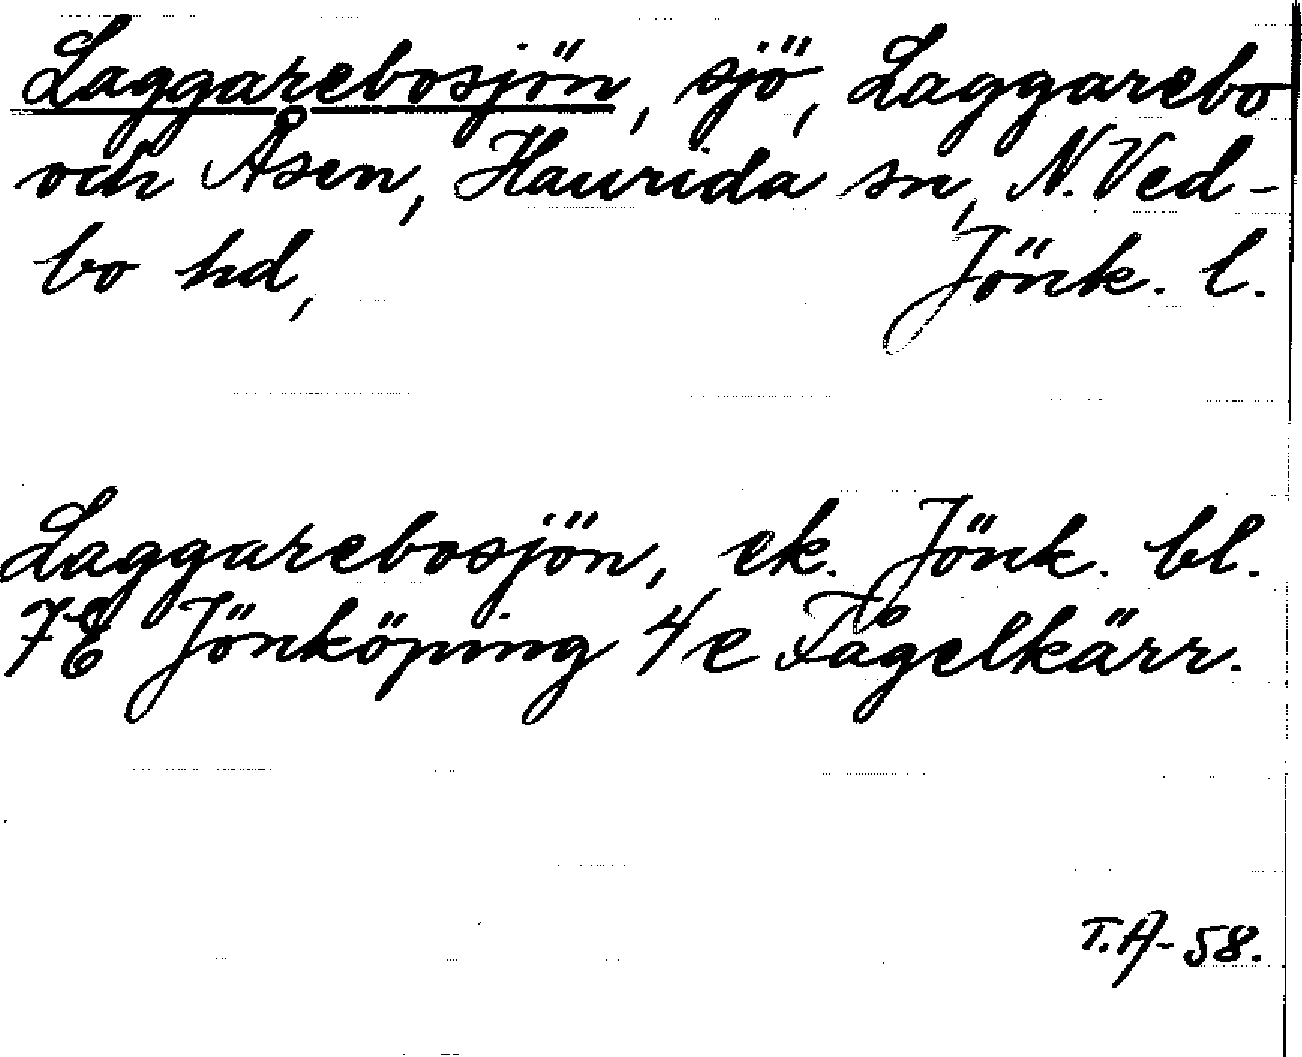 Laggarebosjön, sjö, Laggarebo
och Åsen, Haurida sn, N. Ved-
bo hd, Jönk. l.
Laggarebosjön, ek. Jönk. bl.
7E Jönköping 4e Fågelkärr.
T.A-58.